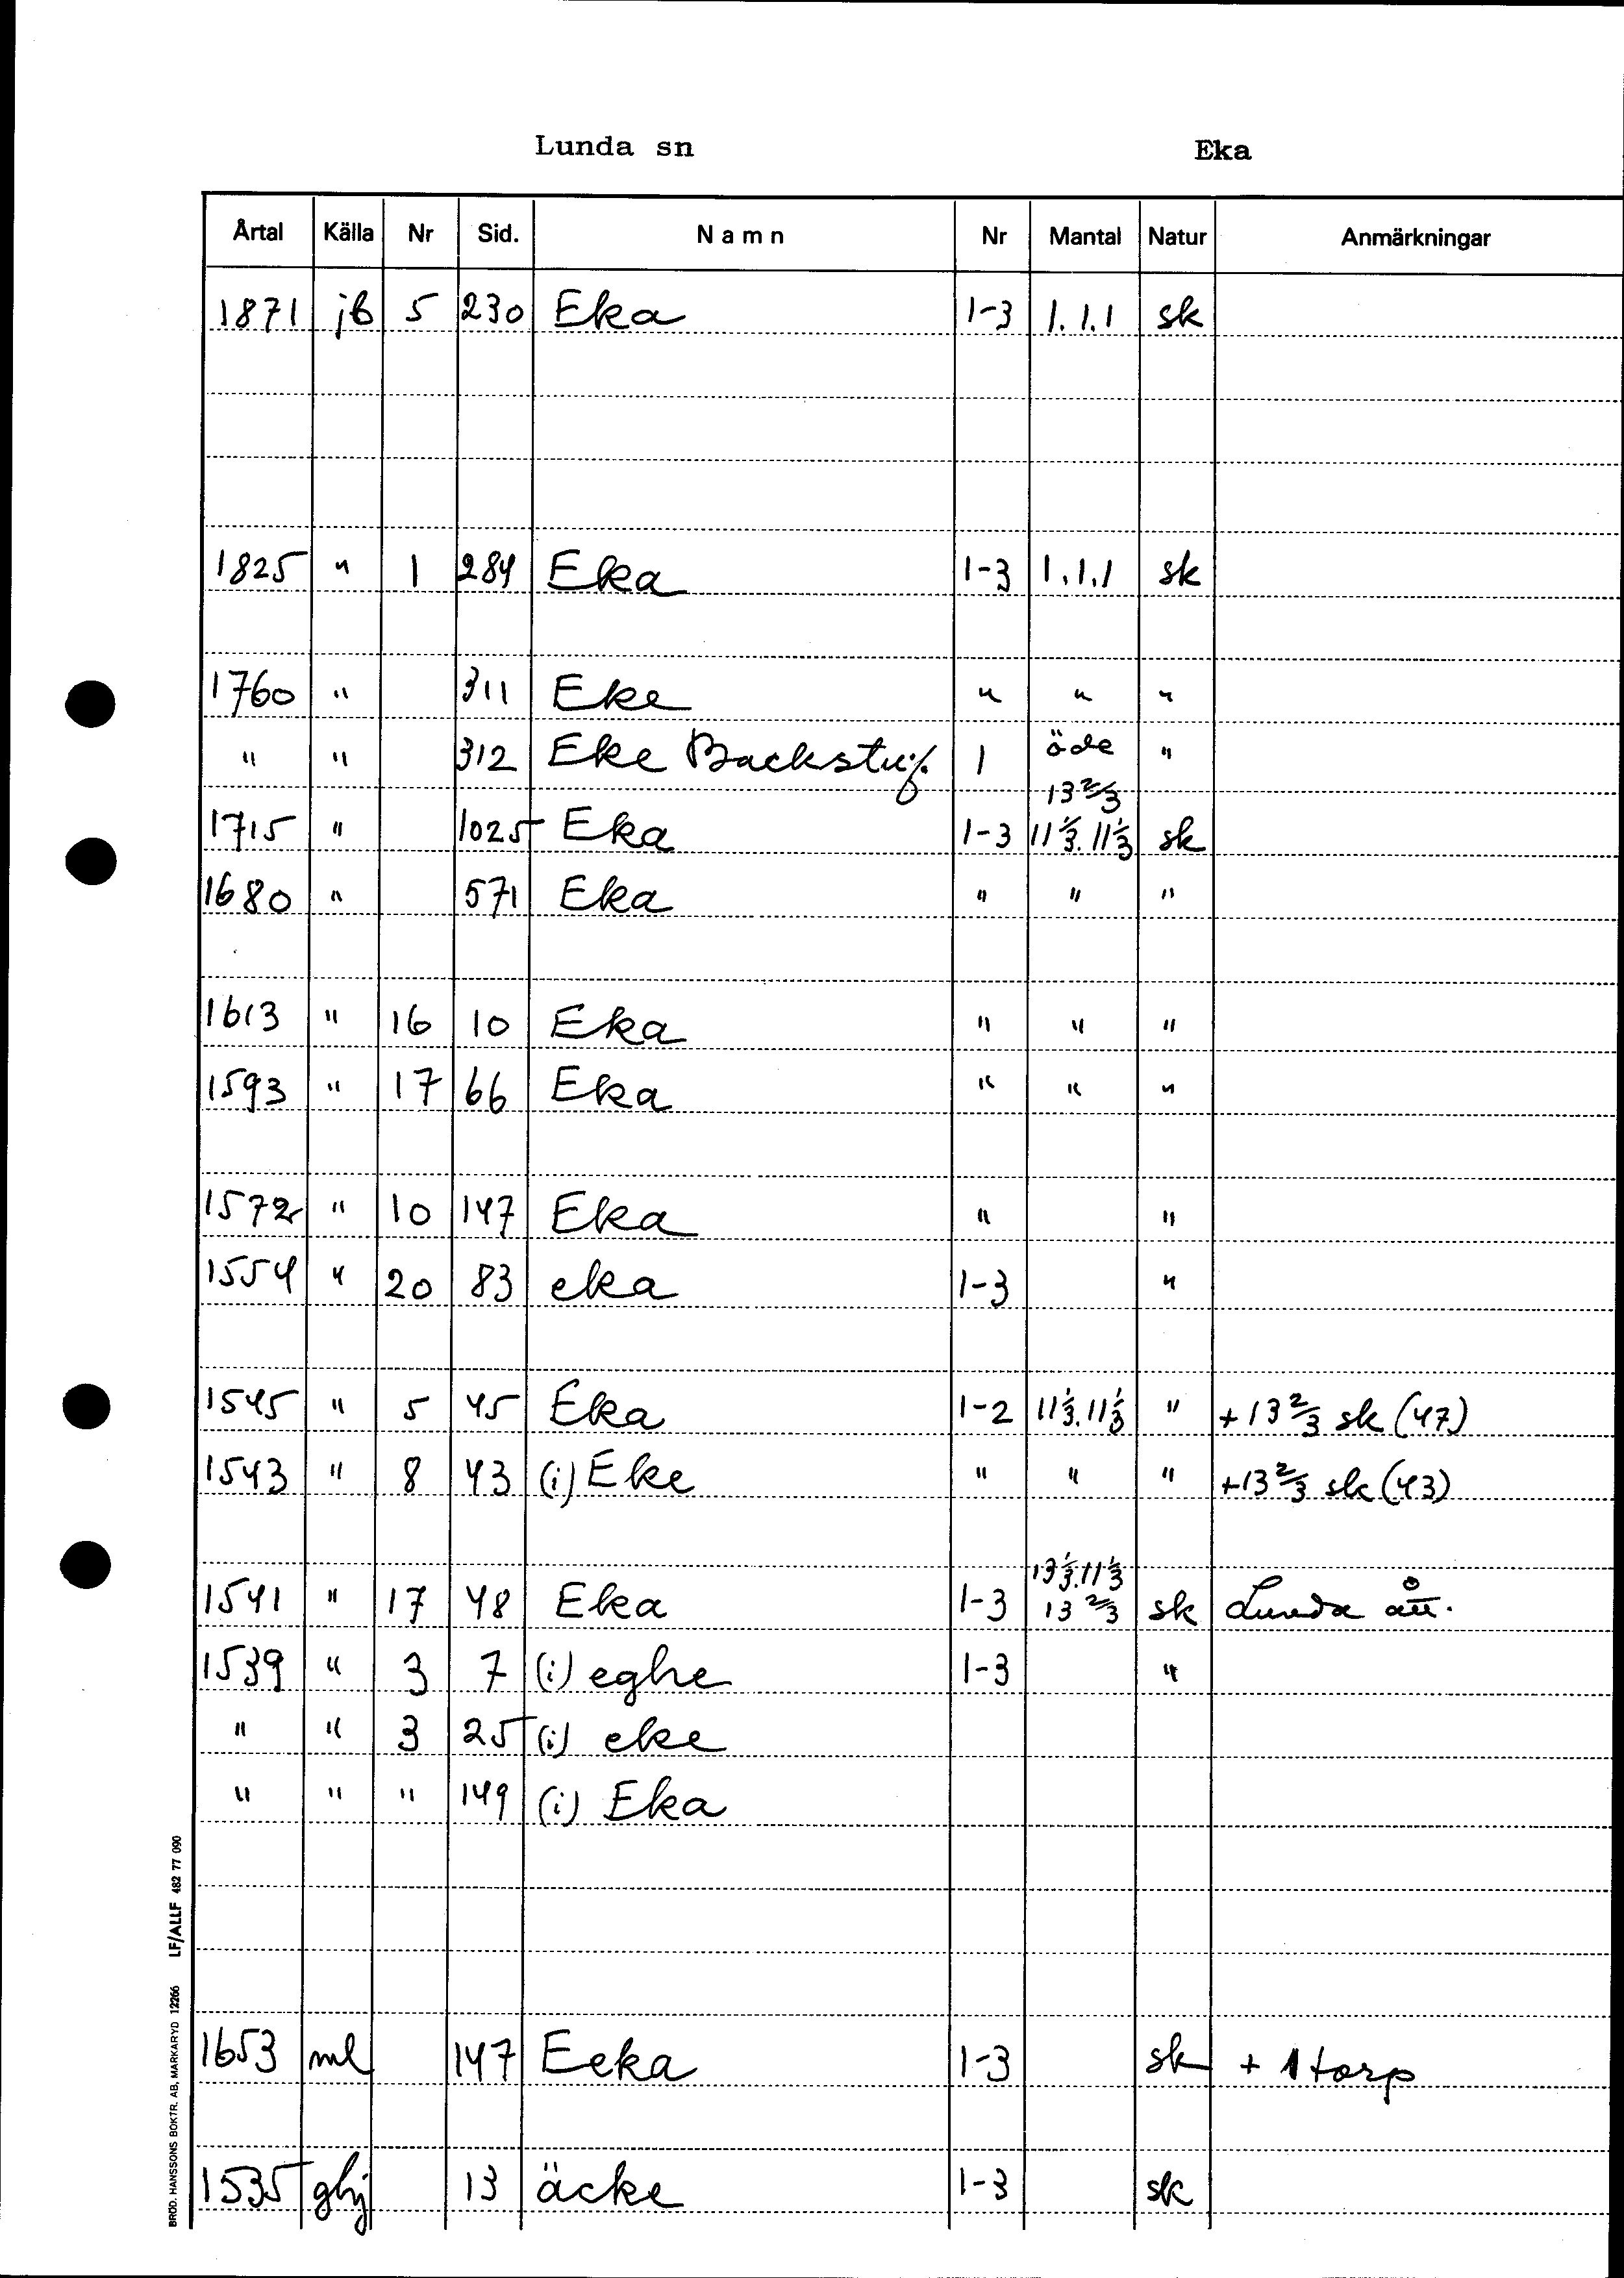 Lunda sn Eka
Årtal Källa Nr Sid. Namn Nr Mantal Natur Anmärkningar
1871 jb 5 230 Eka 1-3 1.1.1 sk
1825 " 1 284 Eka 1-3 1.1.1 sk
1760 " 311 Eke " " "
" " 312 Eke Backstuf. 1 öde "
13 2/3
1715 " 1025 Eka 1-3 11 1/3. 11 1/3 sk
1680 " 571 Eka " " "
1613 " 16 10 Eka " " "
1593 " 17 66 Eka " " "
1572 " 10 147 Eka " "
1554 " 20 83 eka 1-3 "
1545 " 5 45 Eka 1-2 11 1/3. 11 1/3 " +13 2/3 sk (47)
1543 " 8 43 (i) Eke " " " +13 2/3 sk (43)
13 1/3. 11 1/3
1541 " 17 48 Eka 1-3 13 2/3 sk Lunda ått.
1539 " 3 7 (i) eghe 1-3 "
" " 3 25 (i) eke
" " " 149 (i) Eka
1653 ml 147 Eeka 1-3 sk + 1 torp
1535 ghj 13 äcke 1-3 sk
BRÖD. HANSSONS BOKTR. AB, MARKARYD 12266 LF/ALLF 482 77 090